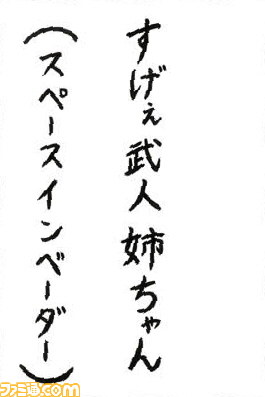 すげぇ武人姉ちゃん
(スペースインベーダー)
ファミ通.com